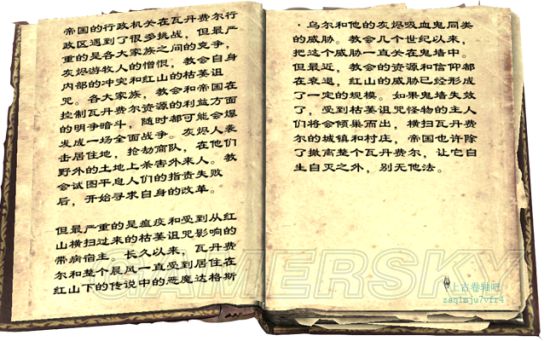 帝国的行政机关在瓦丹费尔行
政区遇到了很多挑战，但最严
重的是各大家族之间的竞争，
灰烬游牧人的憎恨，教会自身
内部的冲突和红山的枯萎诅
咒。各大家族，教会和帝国在
控制瓦丹费尔资源的利益方面
的明争暗斗，随时都可能会爆
发成一场全面战争。灰烬人袭
击居住地，抢劫商队，在他们
野外的土地上杀害外来人。教
会试图平息人们的指责失败
后，开始寻求自身的改革。
但最严重的是瘟疫和受到从红
山横扫过来的枯萎诅咒影响的
带病宿主。长久以来，瓦丹费
尔和整个晨风一直受到居住在
红山下的传说中的恶魔达格斯
·乌尔和他的灰烬吸血鬼同类
的威胁。教会几个世纪以来，
把这个威胁一直关在鬼墙中。
但最近，教会的资源和信仰都
在衰退，红山的威胁已经形成
了一定的规模。如果鬼墙失效
了，受到枯萎诅咒怪物的主人
们将会倾巢而出，横扫瓦丹费
尔的城镇和村庄，帝国也许除
了撤离整个瓦丹费尔，让它自
生自灭之外，别无他法。
GAMERSKY
上古卷轴吧
zaq1mju7vfr4